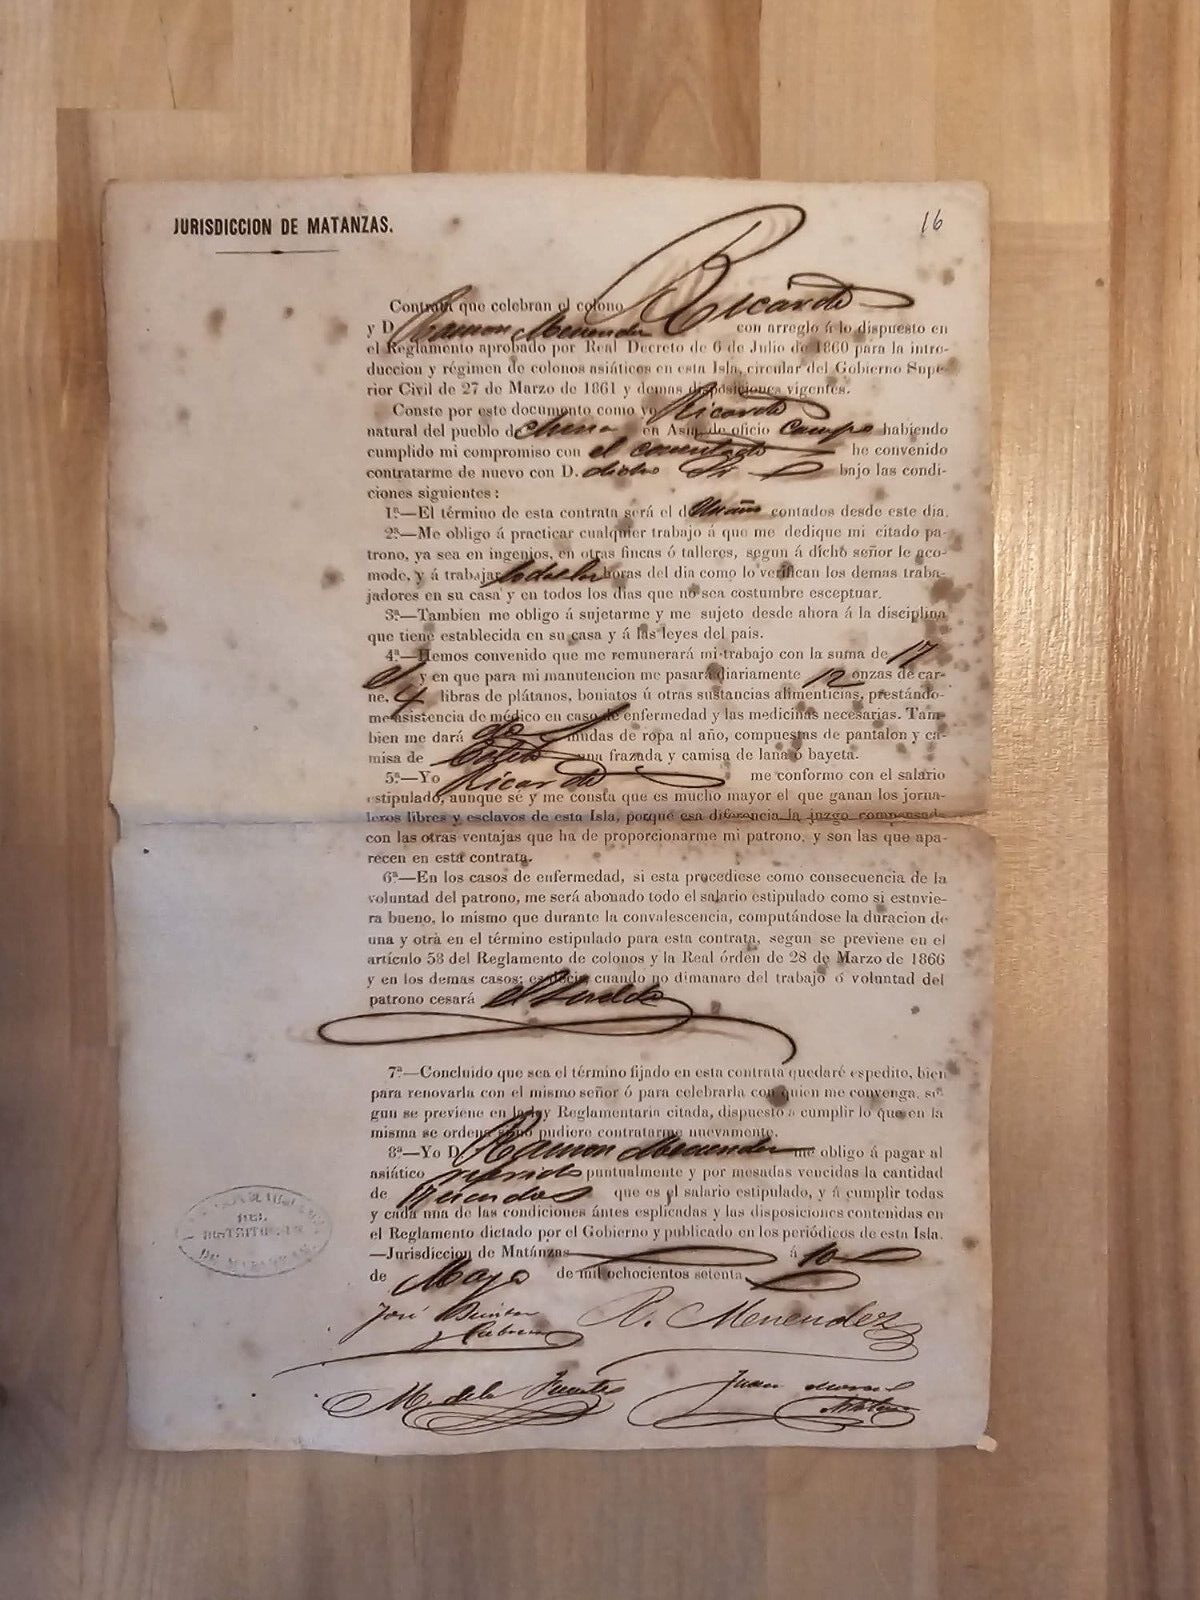 JURISDICCION DE MATANZAS.
16
Contrata que celebran el colono Ricardo
y D. Ramon Menendez con arreglo á lo dispuesto en
el Reglamento aprobado por Real Decreto de 6 de Julio de 1860 para la intro-
duccion y régimen de colonos asiáticos en esta Isla, circular del Gobierno Supe-
rior Civil de 27 de Marzo de 1861 y demas disposiciones vigentes.
Conste por este documento como yo Ricardo
natural del pueblo de China en Asia, de oficio Campo habiendo
cumplido mi compromiso con el he convenido
contratarme de nuevo con D. dicho Sr bajo las condi-
ciones siguientes:
1ª—El término de esta contrata será el de Un año contados desde este dia.
2ª—Me obligo á practicar cualquier trabajo á que me dedique mi citado pa-
trono, ya sea en ingenios, en otras fincas ó talleres, segun á dicho señor le aco-
mode, y á trabajar todas las horas del dia como lo verifican los demas traba-
jadores en su casa y en todos los dias que no sea costumbre esceptuar.
3ª—Tambien me obligo á sujetarme y me sujeto desde ahora á la disciplina
que tiene establecida en su casa y á las leyes del pais.
4ª—Hemos convenido que me remunerará mi trabajo con la suma de 17
y en que para mi manutencion me pasará diariamente 12 onzas de car-
ne, 4 libras de plátanos, boniatos ú otras sustancias alimenticias, prestándo-
me asistencia de médico en caso de enfermedad y las medicinas necesarias. Tam-
bien me dará dos mudas de ropa al año, compuestas de pantalon y ca-
misa de una frazada y camisa de lana ó bayeta.
5ª—Yo Ricardo me conformo con el salario
estipulado, aunque sé y me consta que es mucho mayor el que ganan los jorna-
leros libres y esclavos de esta Isla, porque esa diferencia la juzgo compensada
con las otras ventajas que ha de proporcionarme mi patrono, y son las que apa-
recen en esta contrata.
6ª—En los casos de enfermedad, si esta procediese como consecuencia de la
voluntad del patrono, me será abonado todo el salario estipulado como si estuvie-
ra bueno, lo mismo que durante la convalescencia, computándose la duracion de
una y otra en el término estipulado para esta contrata, segun se previene en el
artículo 58 del Reglamento de colonos y la Real órden de 28 de Marzo de 1866
y en los demas casos; es decir, cuando no dimanare del trabajo ó voluntad del
patrono cesará el Sueldo
7ª—Concluido que sea el término fijado en esta contrata quedaré espedito, bien
para renovarla con el mismo señor ó para celebrarla con quien me convenga, se-
gun se previene en la ley Reglamentaria citada, dispuesto á cumplir lo que en la
misma se ordena sino pudiere contratarme nuevamente.
8ª—Yo D. Ramon Menendez me obligo á pagar al
asiático referido puntualmente y por mesadas vencidas la cantidad
de 17 escudos que es el salario estipulado, y á cumplir todas
y cada una de las condiciones ántes esplicadas y las disposiciones contenidas en
el Reglamento dictado por el Gobierno y publicado en los periódicos de esta Isla.
—Jurisdiccion de Matánzas á 10
de Mayo de mil ochocientos setenta
José
y Cabrera
R. Menendez
M. de la Fuente
Juan
DEL
DISTRITO
DE MATANZAS